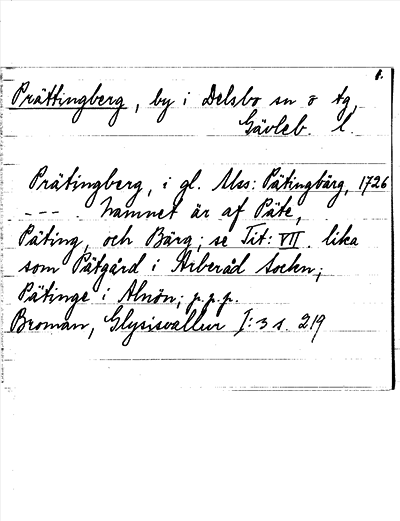 1.
Prättingberg, by i Delsbo sn o tg,
Gävleb. l.
Prätingberg, i gl. Mss: Pätingbärg, 1726
--- . namnet är af Päte,
Päting, och Bärg; se Tit: VII. lika
som Pätgård i Arberåd Sockn;
Pätinge i Alnön; p.p.p.
Broman, Glysisvallur I:3 s. 219